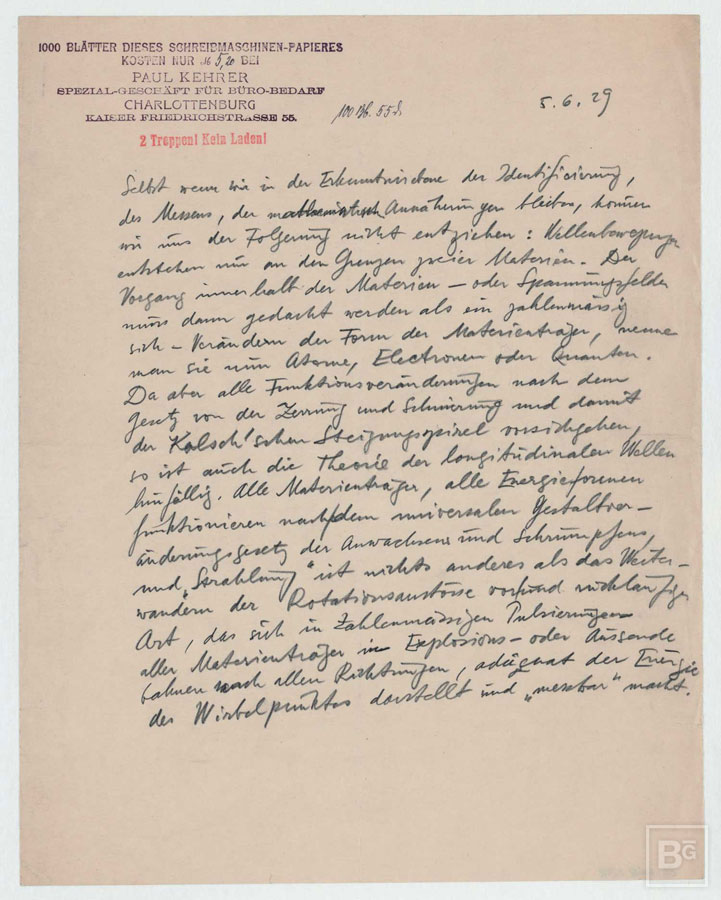 1000 BLÄTTER DIESES SCHREIBMASCHINEN-PAPIERES
KOSTEN NUR M 5,20 BEI
PAUL KEHRER
SPEZIAL-GESCHÄFT FÜR BÜRO-BEDARF
CHARLOTTENBURG
KAISER FRIEDRICHSTRASSE 55.
2 Treppen! Kein Laden!
100 Bl. 55 d
5.6.29
Selbst wenn wir in der Erkenntnisebene der Identificierung,
des Messens, der mathematisch Annäherungen bleiben, können
wir uns der Folgerung nicht entziehen: Wellenbewegungen
entstehen nur an den Grenzen zweier Materien. Der
Vorgang innerhalb der Materien – oder Spannungsfelder
muss dann gedacht werden als ein zahlenmässig
sich – Verändern der Form der Materienträger, nenne
man sie nun Atome, Electronen oder Quanten.
Da aber alle Funktionsveränderungen nach dem
Gesetz von der Zerrung und Schnürung und damit
der Kolsch'schen Steigungsspirel vorsichgehen,
so ist auch die Theorie der longitudinalen Wellen
hinfällig. Alle Materienträger, alle Energieformen
funktionieren nach dem universalen Gestaltver-
änderungsgesetz der Anwachsens und Schrumpfens,
und „Strahlung" ist nichts anderes als das Weiter-
wandern der Rotationsanstösse vor und rückläufiger
Art, das sich in Zahlenmässigen Pulsierungen
aller Materienträger in Explosions- oder Aussende
bahnen nach allen Richtungen, adäquat der Energie
des Wirbelpunktes darstellt und „messbar" macht.
BG